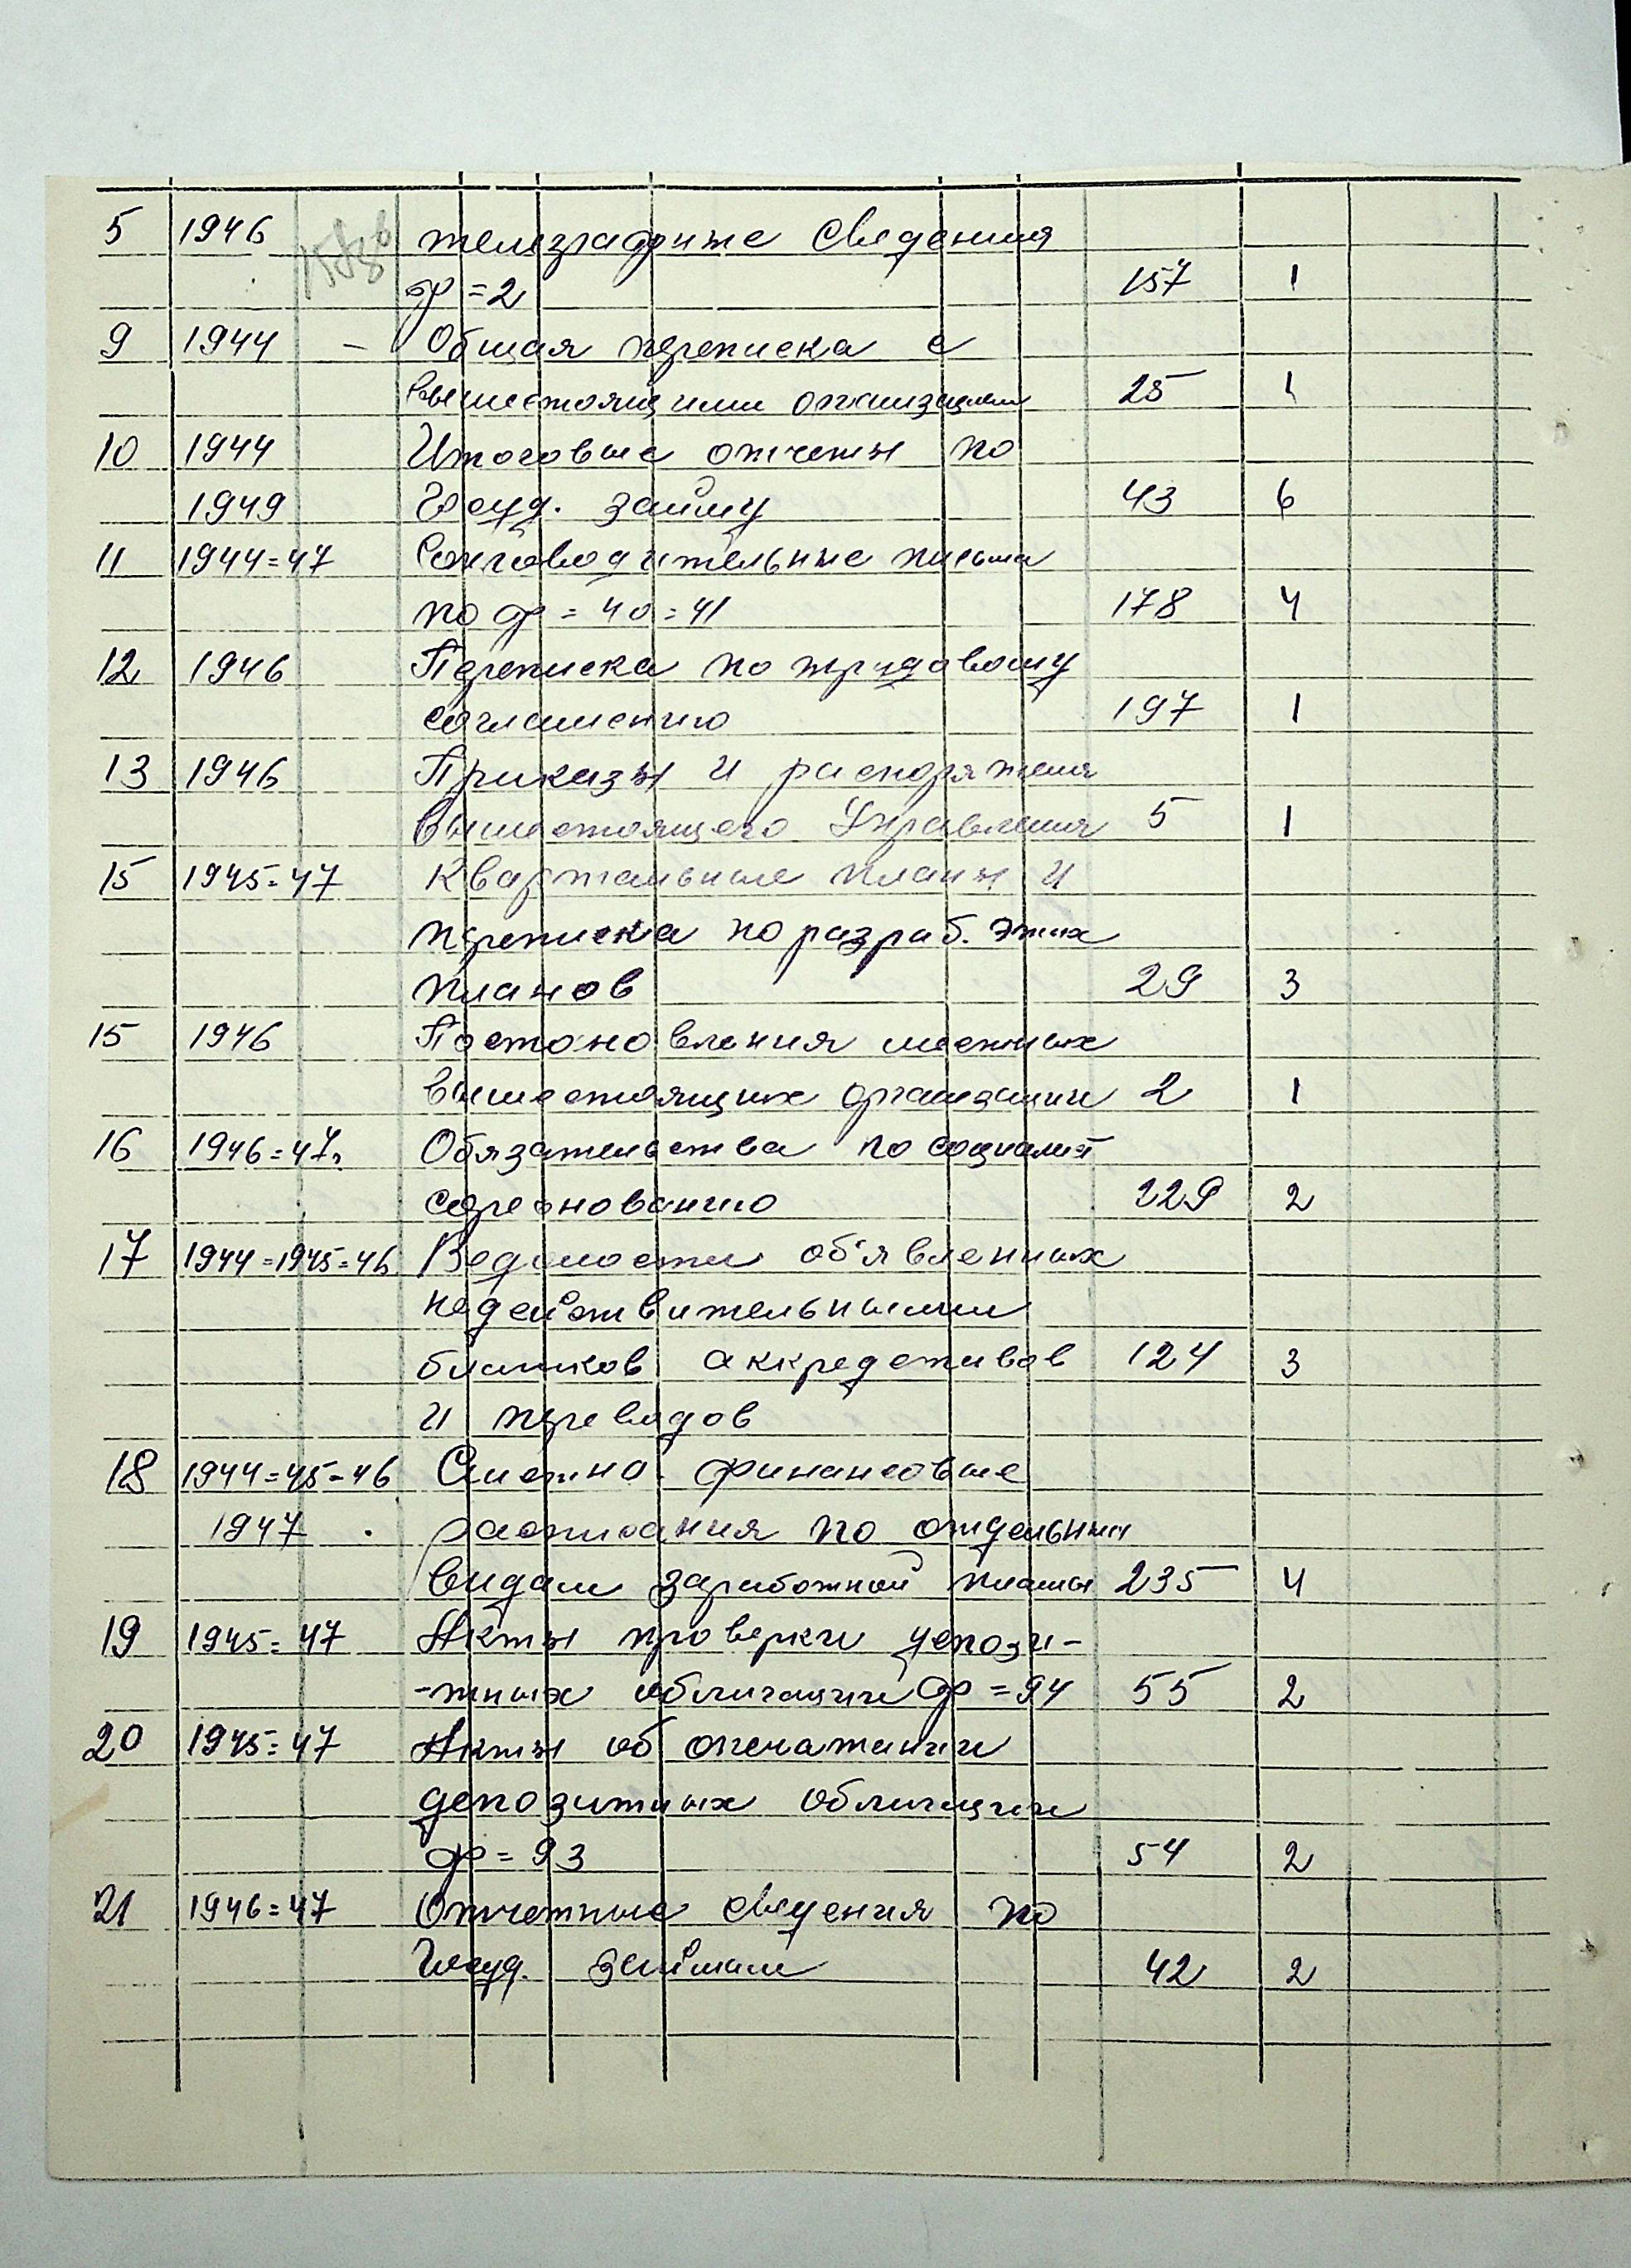 5 1946 телеграфные сведения
ф=2 157 1
9 1944 – Общая переписка с
вышестоящими организациям 25 1
10 1944 Итоговые отчеты по
1949 Госуд. займу 43 6
11 1944=47 Сопроводительные письма
по ф=40=41 178 4
12 1946 Переписка по трудовому
соглашению 197 1
13 1946 Приказы и распоряжения
вышестоящего Управления 5 1
15 1945=47 Квартальные планы и
переписка по разраб. этих
планов 29 3
15 1946 Постоновления местных
вышестоящих организации 2 1
16 1946=47г. Обязательства по социалист
соревнованию 229 2
17 1944=1945=46 Ведомости об'явленных
недействительными
бланков аккредетивов 124 3
и переводов
18 1944=45=46 Сметно-финансовые
1947 . расписания по отдельным
видам заработной платы 235 4
19 1945=47 Акты проверки депози-
-тных облигации ф=94 55 2
20 1945=47 Акты об опечатании
депозитных облигации
ф=93 54 2
21 1946=47 Отчетные сведения по
Госуд. займам 42 2